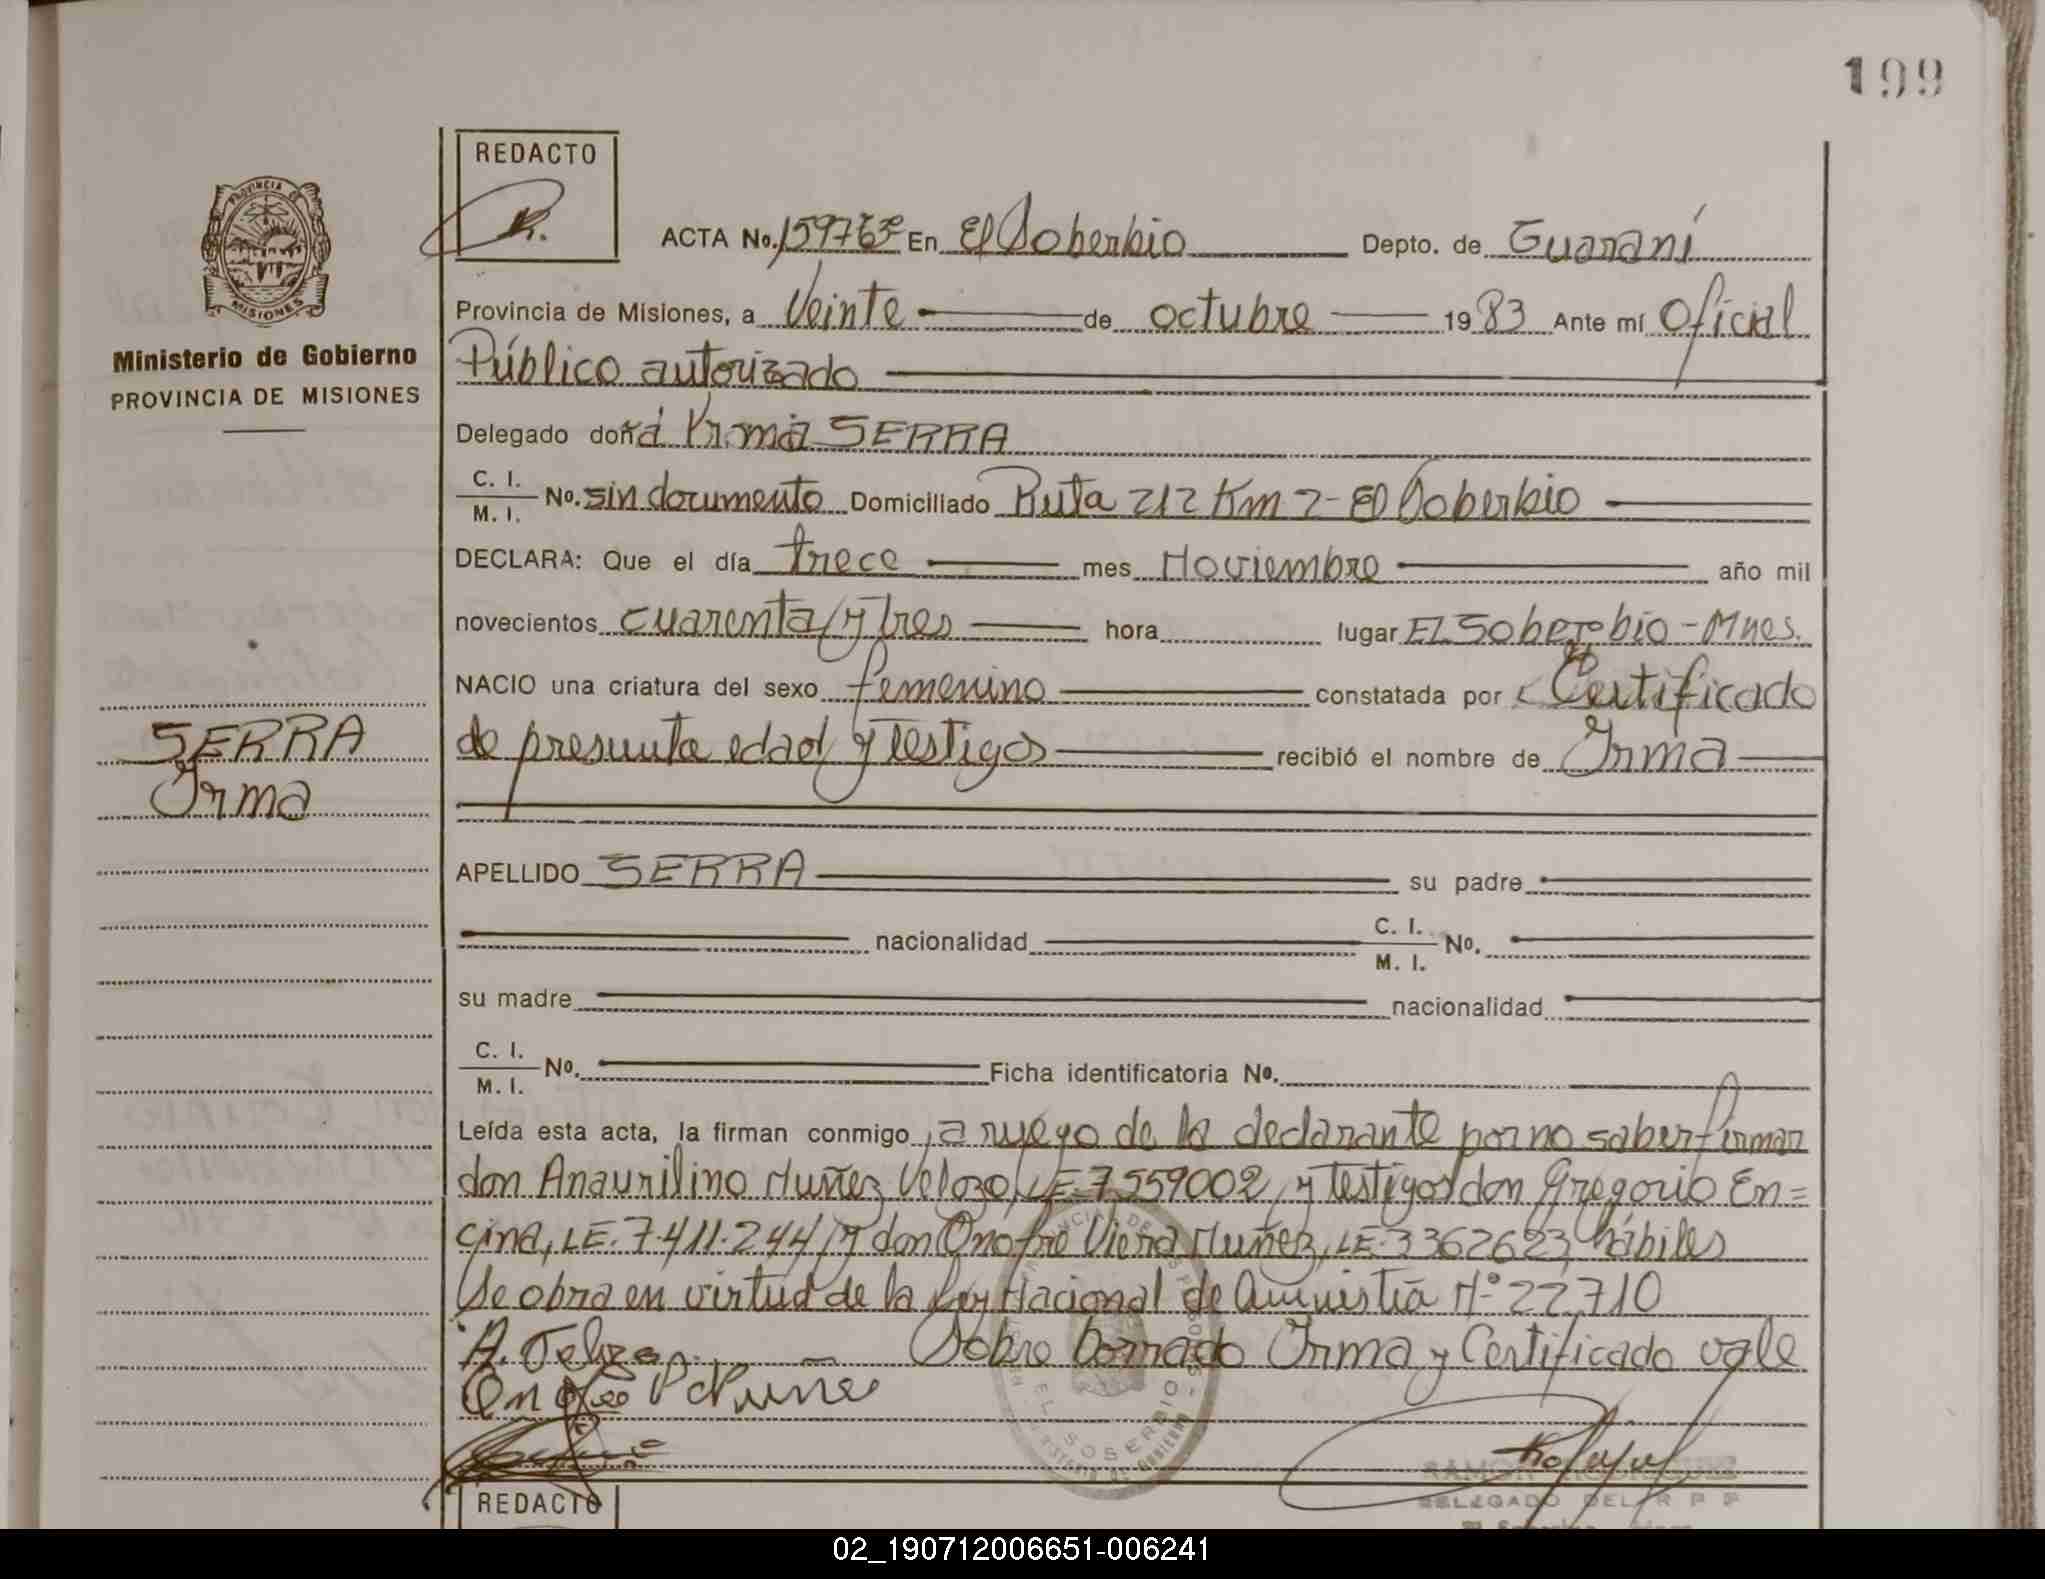 199
REDACTO
PROVINCIA DE
MISIONES
ACTA No. En El Soberbio Depto. de Guaraní
Provincia de Misiones, a Veinte de octubre 1983 Ante mí Oficial
Ministerio de Gobierno
Público autorizado
PROVINCIA DE MISIONES
Delegado doña Irma SERRA
C. I.
M. I. No. sin documento Domiciliado Ruta 212 Km 2 - El Soberbio
DECLARA: Que el día trece mes Noviembre año mil
novecientos cuarenta y tres hora lugar El Soberbio - Mnes.
NACIO una criatura del sexo femenino constatada por Certificado
SERRA
de presunta edad y testigos recibió el nombre de Irma
Irma
APELLIDO SERRA su padre
nacionalidad C. I.
M. I. No.
su madre nacionalidad
C. I.
M. I. No. Ficha identificatoria No.
Leída esta acta, la firman conmigo, a ruego de la declarante por no saber firmar
don Anaurilino Nuñez Velozo, LE. 7559002, y testigos don Gregorio En=
cina, LE. 7.411.244, y don Onofre Viera Nuñez, LE. 3362623 hábiles
Se obra en virtud de la Ley Nacional de Amnistía Nº 22.710
Sobre borrado Irma y Certificado vale
EL SOBERBIO
DELEGADO DEL R P P
REDACTO
02_190712006651-006241